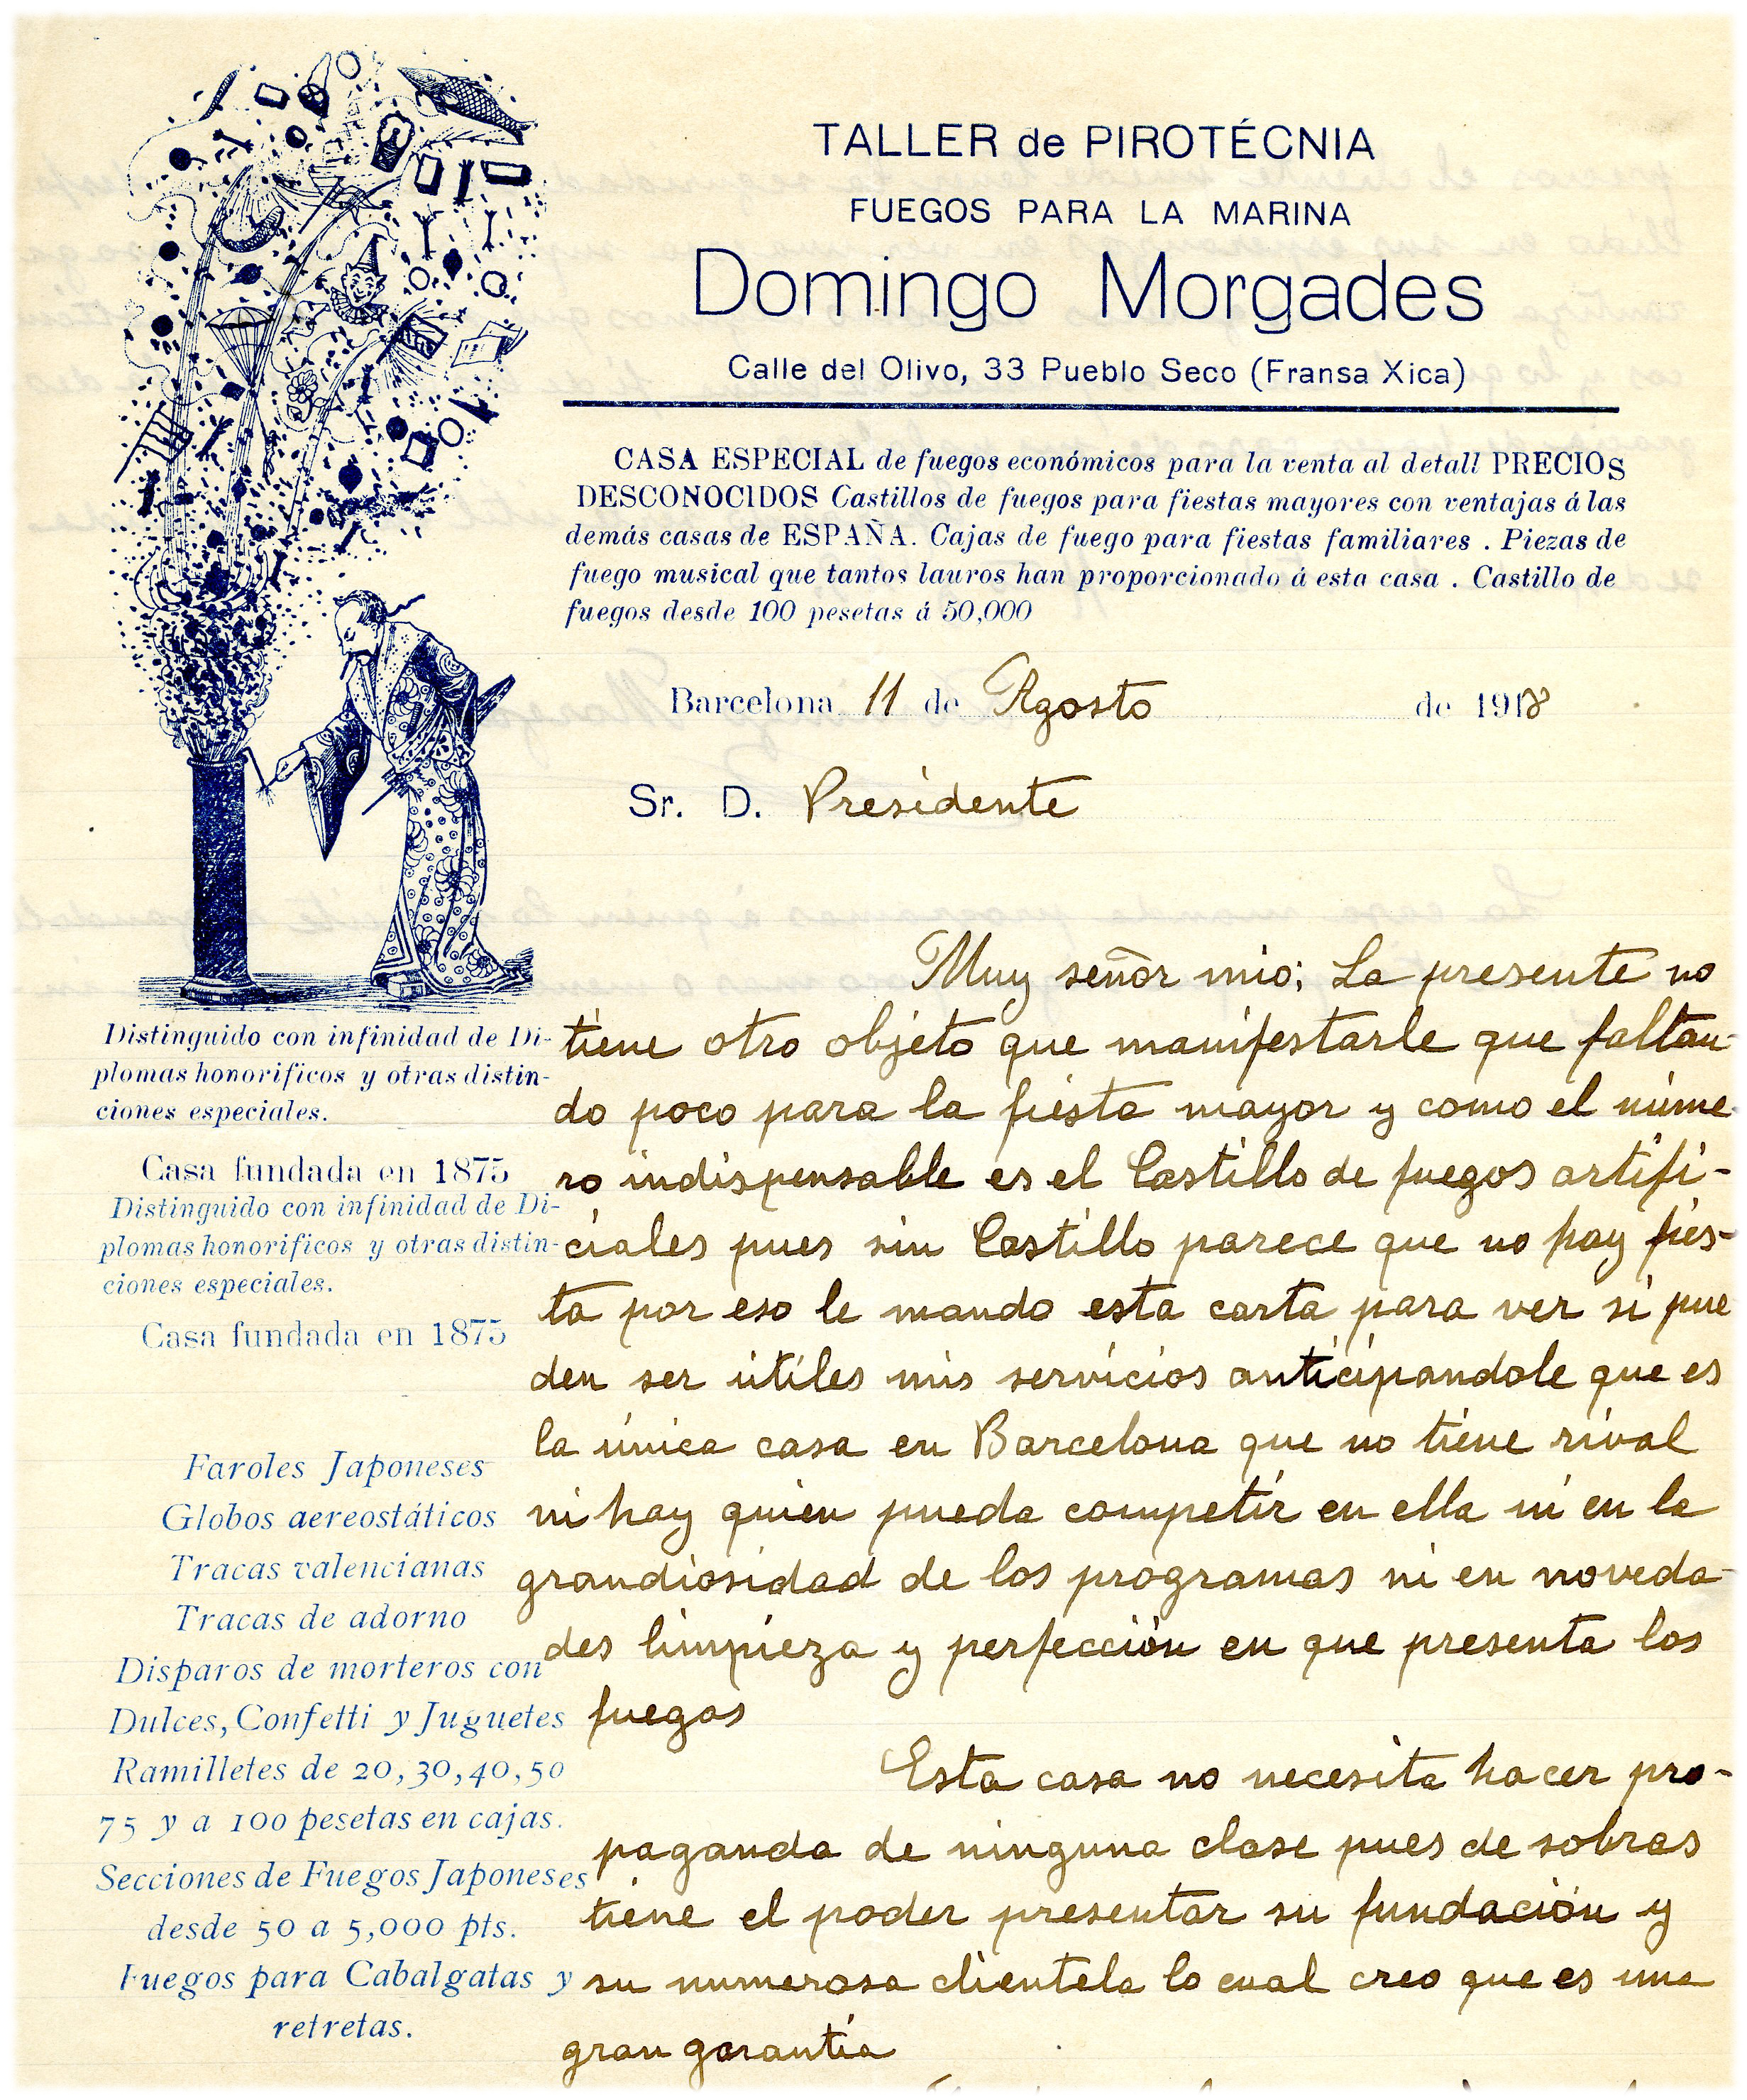 TALLER de PIROTÉCNIA
FUEGOS PARA LA MARINA
Domingo Morgades
Calle del Olivo, 33 Pueblo Seco (Fransa Xica)
CASA ESPECIAL de fuegos económicos para la venta al detall PRECIOS
DESCONOCIDOS Castillos de fuegos para fiestas mayores con ventajas á las
demás casas de ESPAÑA. Cajas de fuego para fiestas familiares . Piezas de
fuego musical que tantos lauros han proporcionado á esta casa . Castillo de
fuegos desde 100 pesetas á 50,000
Barcelona 11 de Agosto de 1918
Sr. D. Presidente
Muy señor mio; La presente no
tiene otro objeto que manifestarle que faltan-
do poco para la fiesta mayor y como el núme-
ro indispensable es el Castillo de fuegos artifi-
ciales pues sin Castillo parece que no hay fies-
ta por eso le mando esta carta para ver si pue
den ser útiles mis servicios anticipandole que es
la única casa en Barcelona que no tiene rival
ni hay quien pueda competir en ella ni en la
grandiosidad de los programas ni en noveda-
des limpieza y perfección en que presenta los
fuegos
Esta casa no necesita hacer pro-
paganda de ninguna clase pues de sobras
tiene el poder presentar su fundación y
su numerosa clientela lo cual creo que es una
gran garantía
Distinguido con infinidad de Di-
plomas honorificos y otras distin-
ciones especiales.
Casa fundada en 1875
Distinguido con infinidad de Di-
plomas honorificos y otras distin-
ciones especiales.
Casa fundada en 1875
Faroles Japoneses
Globos aereostáticos
Tracas valencianas
Tracas de adorno
Disparos de morteros con
Dulces, Confetti y Juguetes
Ramilletes de 20, 30, 40, 50
75 y a 100 pesetas en cajas.
Secciones de Fuegos Japoneses
desde 50 a 5,000 pts.
Fuegos para Cabalgatas y
retretas.